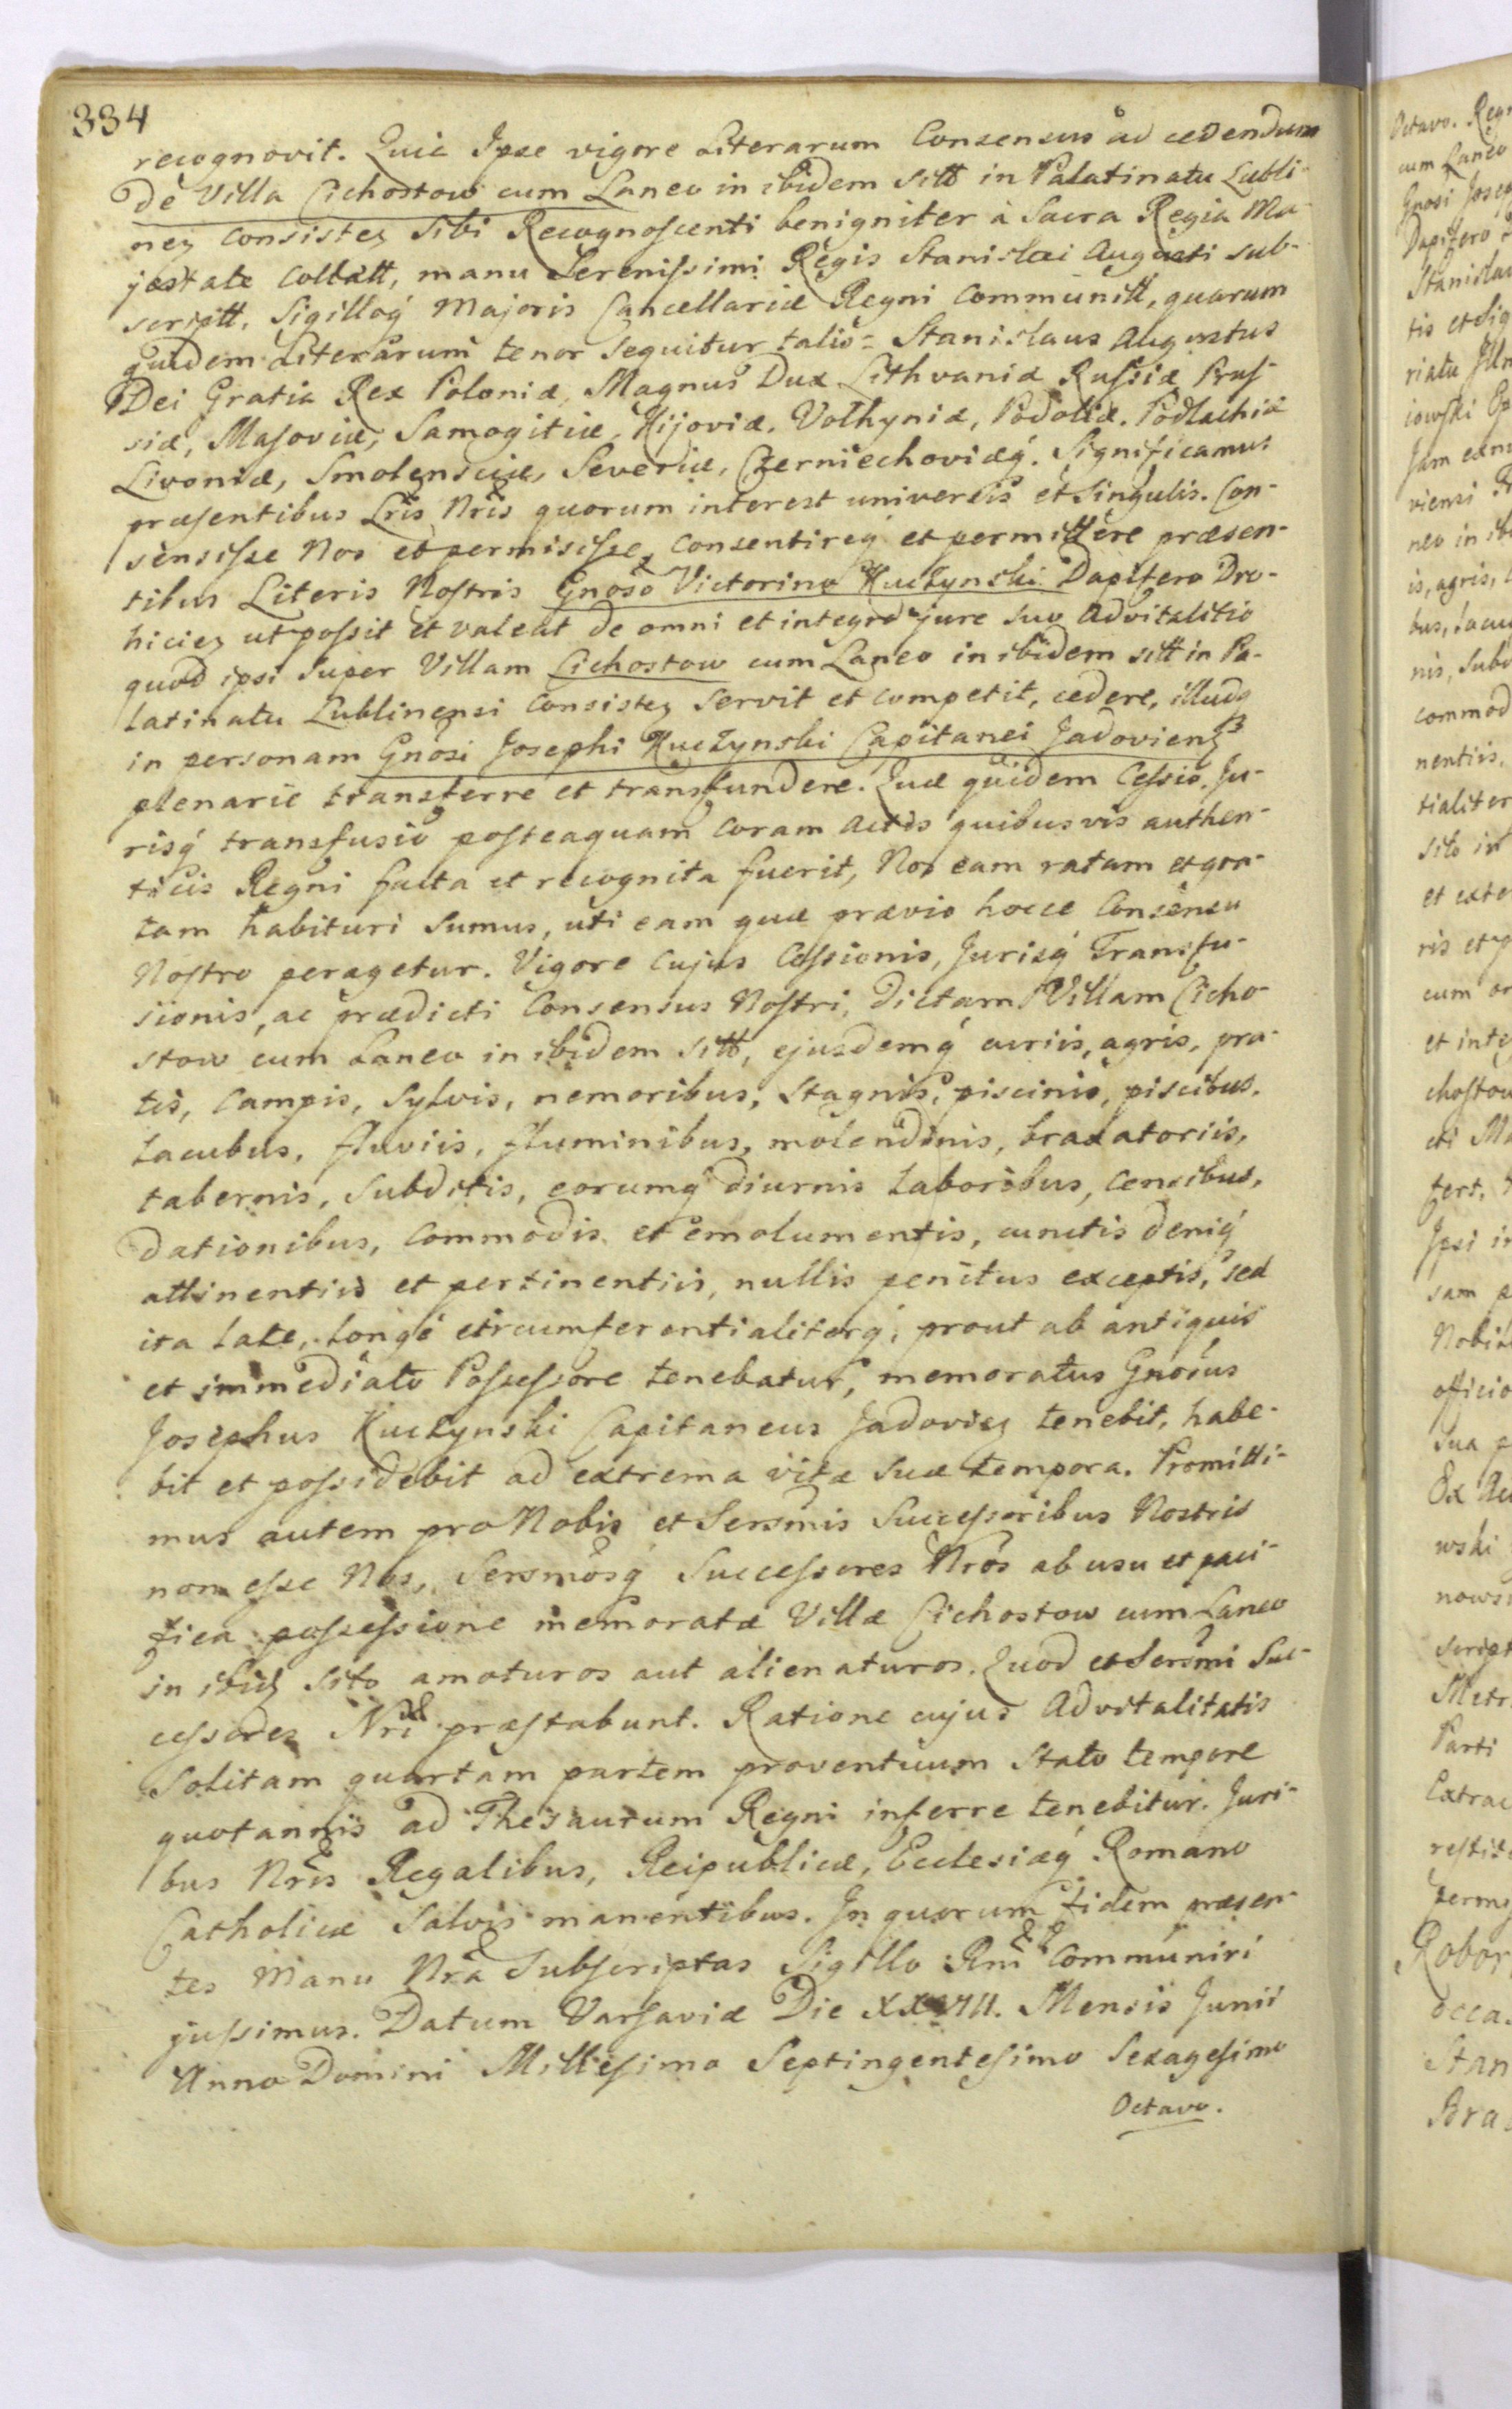 334
recognovit. Quia Ipse vigore Literarum Consensus ad cedendum
de Villa Cichostow cum Laneo in ibidem sitt in Palatinatu Lubli-
nez Consistez Sibi Recognoscenti benigniter à Sacra Regia Ma-
jestate Collatt, manu Serenissimi Regis Stanislai Augusti sub-
scriptt, Sigilloq́ Majoris Cancellariæ Regni Communitt, quarum
quidem Literarum tenor sequitur talis = Stanislaus Augustus
Dei Gratia Rex Poloniæ, Magnus Dux Lithvaniæ Russiæ Prus-
siæ, Masoviæ, Samogitiæ, Kijoviæ, Volhyniæ, Podoliæ, Podlachiæ
Livoniæ, Smolensciæ, Severiæ, Czerniechoviæq́. Significamus
præsentibus Lris Nris quorum interest universis et Singulis. Con-
sensisse Nos et permisisse, Consentireq́ et permittere præsen-
tibus Literis Nostris Gnoso Victorino Kuczynski Dapifero Dro-
hiciez ut possit et valeat de omni et integro jure suo Advitalitio
quod ipsi Super Villam Cichostow cum Laneo in ibidem sitt in Pa-
latinatu Lublinensi Consistez Servit et Competit, cedere, illudq
in personam Gnosi Josephi Kuczynski Capitanei Jadovienz
plenarie transferre et transfundere. Quæ quidem Cessio, Ju-
risq́ transfusio posteaquam Coram Actis quibusvis authen-
ticis Regni facta et recognita fuerit, Nos eam ratam et gra-
tam habituri Sumus, uti eam quæ prævio hocce Consensu
Nostro peragetur. Vigore Cujus Cessionis, Jurisq́ Transfu-
sionis, ac prædicti Consensus Nostri, dictam Villam Cicho-
stow cum Laneo in ibidem sitt, ejusdemq́ curiis, agris, pra-
tis, Campis, Sylvis, nemoribus, Stagnis, piscinis, piscibus,
Lacubus, fluviis, fluminibus, molendinis, braxatoriis,
tabernis, Subditis, eorumq́ diurnis Laboribus, Censibus,
dationibus, Commodis et emolumentis, cunctis deniq́
attinentiis et pertinentiis, nullis penitus exceptis, sed
ita Late, Longé circumferentialiterq́, prout ab antiquis
et immediato Possessore tenebatur, memoratus Gnosus
Josephus Kuczynski Capitaneus Jadoviez tenebit, habe-
bit et possidebit ad extrema vitæ Suæ tempora. Promitti-
mus autem pro Nobis et Serenmis Successoribus Nostris
non esse Nos, Sersmosq́ Successores Nros ab usu et paci-
fica possessione memoratæ Villæ Cichostow cum Laneo
in ibidz Sito amoturos aut alienaturos. Quod et Sersmi Suc-
cessores Nri præstabunt. Ratione cujus Advitalitatis
Solitam quartam partem proventuum Stato tempore
quotannis ad Thesaurum Regni inferre tenebitur. Juri-
bus Nris Regalibus, Reipublicæ, Ecclesiæq́ Romano
Catholicæ Salvis manentibus. In quorum fidem præsen-
tes Manu Nra Subscriptas Sigillo Rni Communiri
jussimus. Datum Varsaviæ Die XXVIII. Mensis Junii
Anno Domini Millesimo Septingentesimo Sexagesimo
Octavo.
Octavo. Regn
cum Laneo
Gnosi Josep
Dapifero
Stanislau
tis et Sig